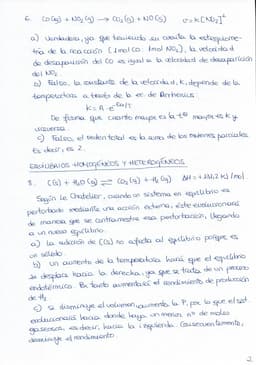 6. CO(g) + NO2(g) → CO2(g) + NO(g) v = k [NO2]²
a) Verdadera, ya que teniendo en cuenta la estequiome-
tría de la reacción (1 mol CO : 1 mol NO2), la velocidad
de desaparición del CO es igual a la velocidad de desaparición
del NO2.
b) Falso, la constante de velocidad, k, depende de la
temperatura a través de la ec de Arrhenius:
k = A · e
De forma que cuanto mayor es la tª mayor es k y
viceversa.
c) Falso, el orden total es la suma de los órdenes parciales.
Es decir, es 2.
EQUILIBRIOS HOMOGÉNEOS Y HETEROGÉNEOS
1. C(s) + H2O(g) ⇌ CO(g) + H2(g) ΔH = + 131,2 kJ/mol
Según Le Chatelier, cuando un sistema en equilibrio es
perturbado mediante una acción externa, éste evolucionará
de manera que se contrarreste esa perturbación, llegando
a un nuevo equilibrio.
a) La adición de C(s) no afecta al equilibrio porque es
un sólido.
b) Un aumento de la temperatura hará que el equilibrio
se desplace hacia la derecha, ya que se trata de un proceso
endotérmico. Por tanto aumentará el rendimiento de producción
de H2
c) Si disminuye el volumen, aumenta la P, por lo que el sist.
evolucionará hacia donde haya un menor nº de moles
gaseosos, es decir, hacia la izquierda. Consecuentemente,
disminuye el rendimiento.
2